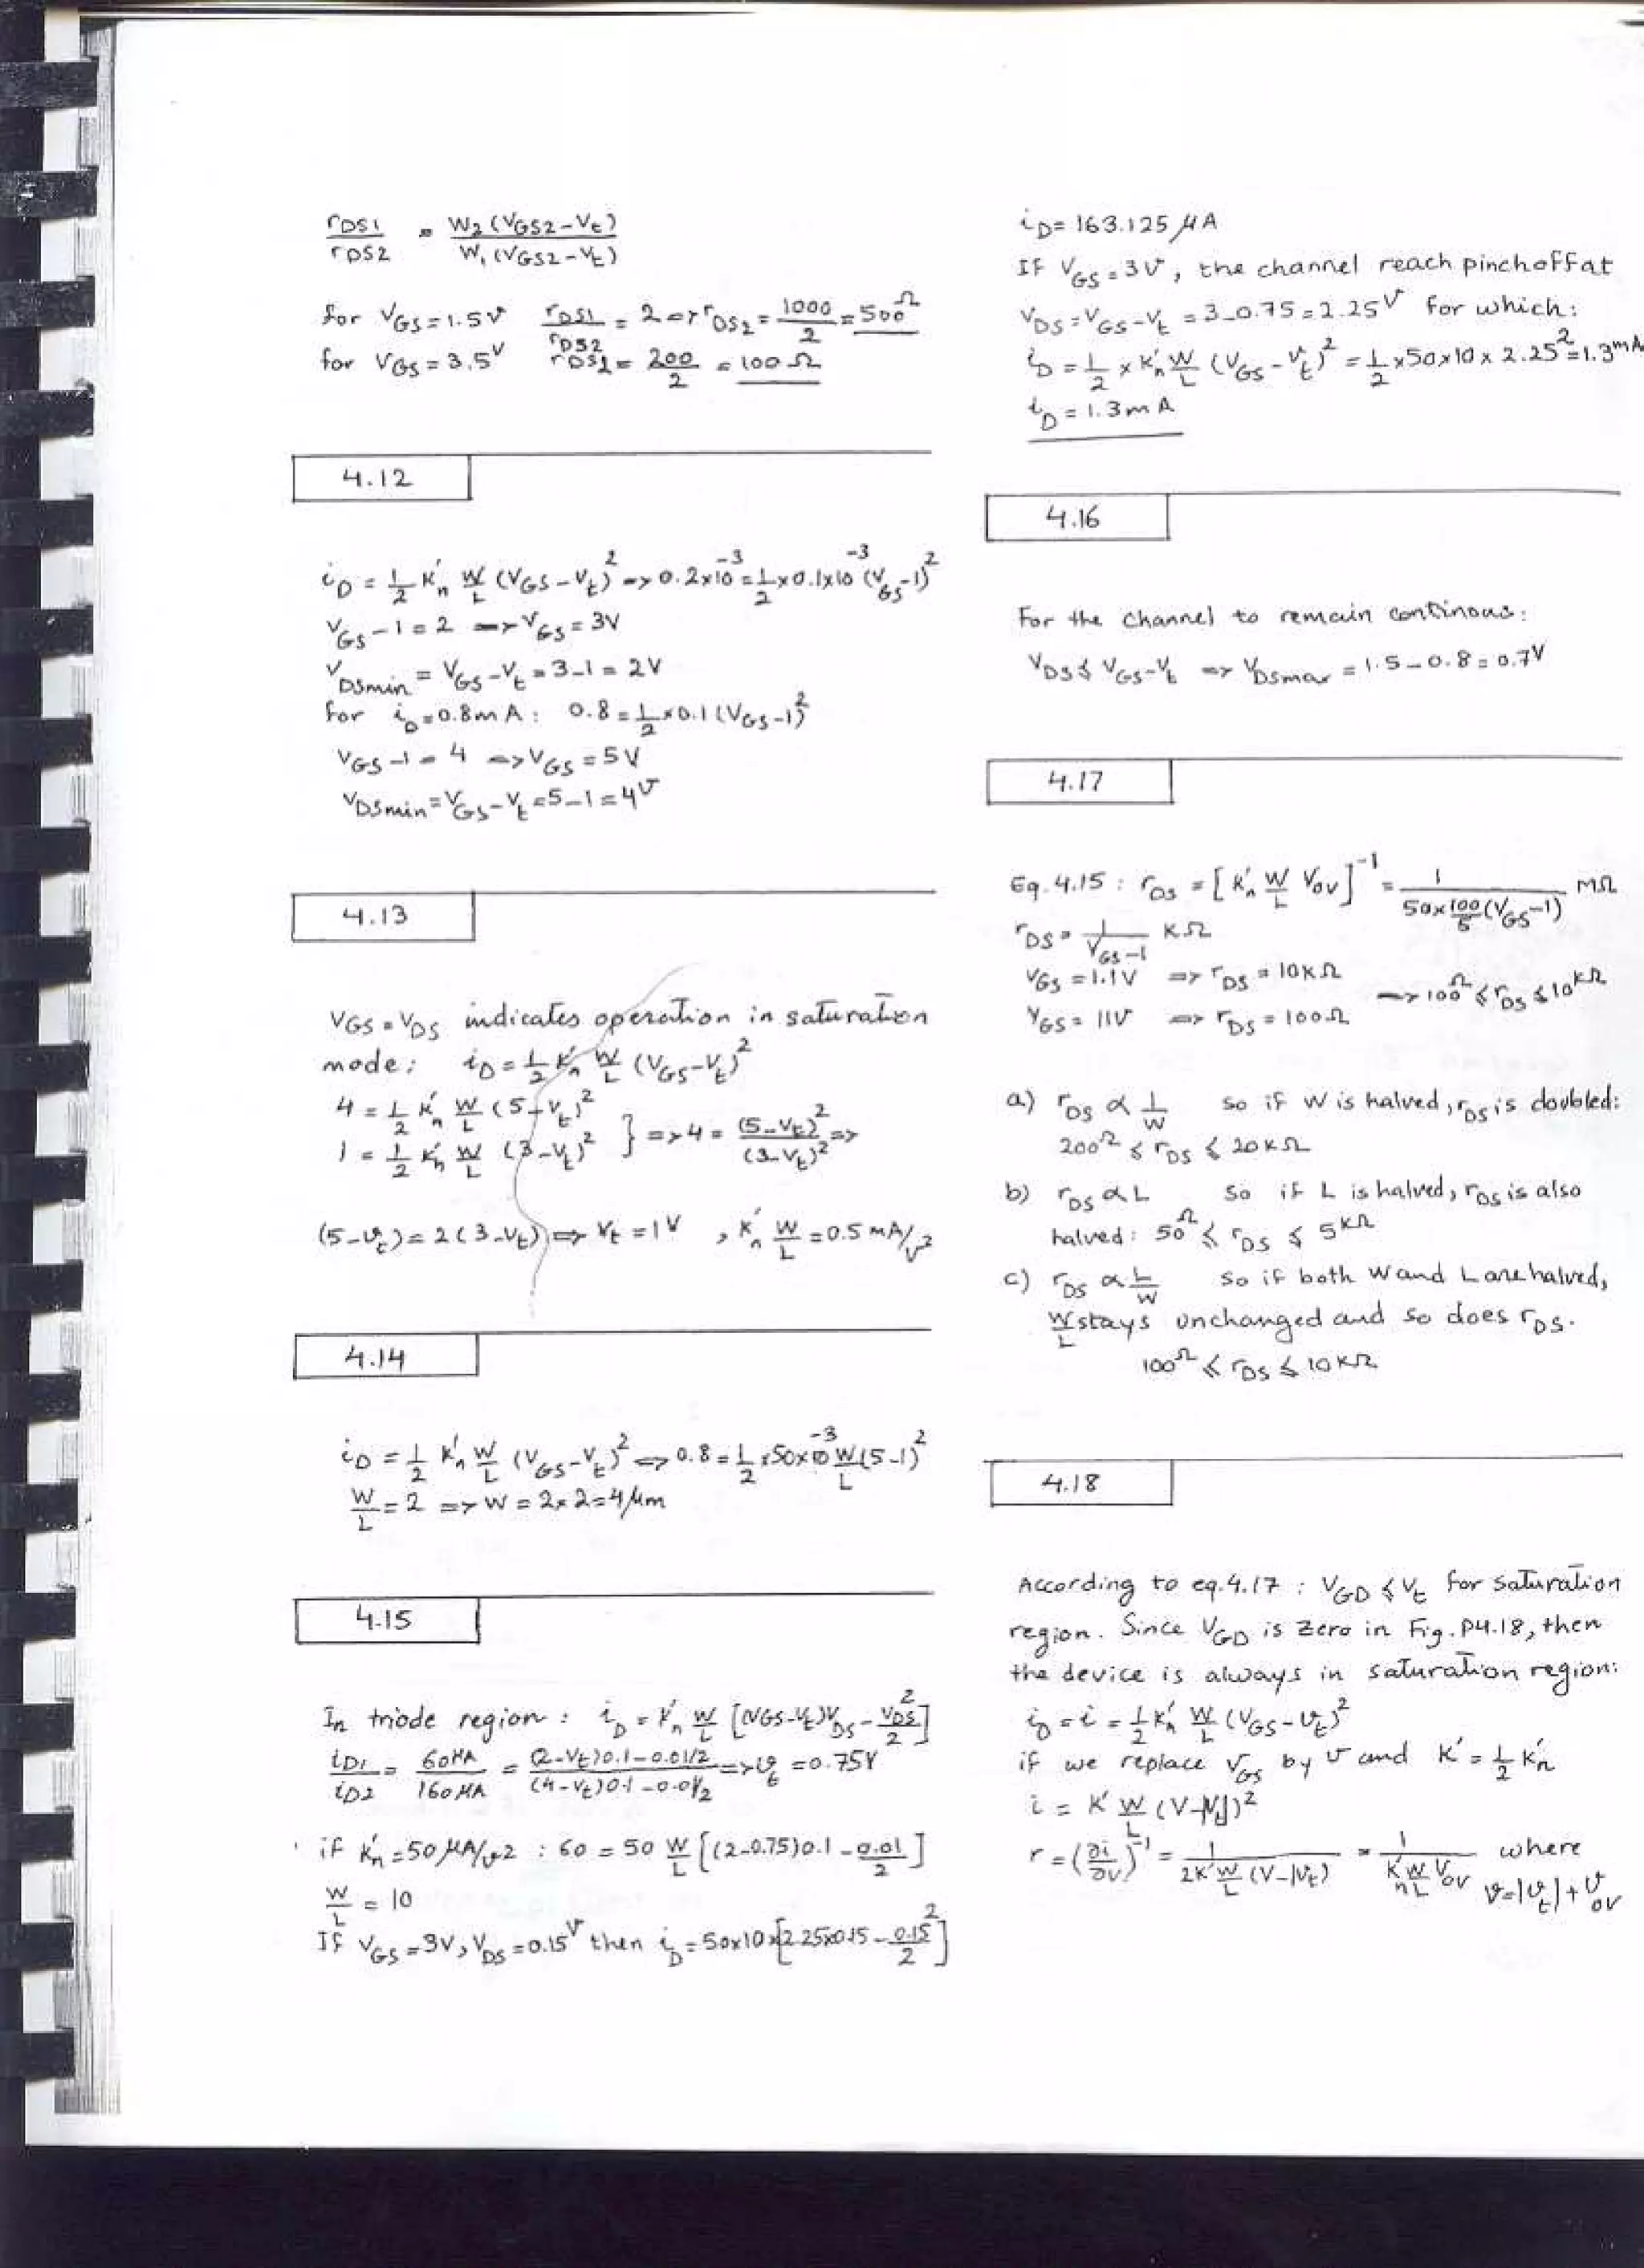 rDS1/rDS2 = W2(VGS2-Vt)/W1(VGS2-Vt)
for VGS=1.5V rDS1/rDS2 = 2 => rDS2 = 1000/2 = 500Ω
for VGS=3.5V rDS1 = 200/2 = 100Ω
4.12
iD = 1/2 K'n W/L (VGS-Vt)² => 0.2x10⁻³ = 1/2 x0.1x10⁻³ (VGS-1)²
VGS-1 = 2 => VGS = 3V
VDSmin = VGS-Vt = 3-1 = 2V
for iD=0.8mA: 0.8 = 1/2 x0.1(VGS-1)²
VGS-1 = 4 => VGS = 5V
VDSmin = VGS-Vt = 5-1 = 4V
4.13
VGS = VDS indicates operation in saturation
mode: iD = 1/2 K'n W/L (VGS-Vt)²
4 = 1/2 K'n W/L (5-Vt)²
1 = 1/2 K'n W/L (3-Vt)² } => 4 = (5-Vt)²/(3-Vt)² =>
(5-Vt) = 2(3-Vt) => Vt = 1V , K'n W/L = 0.5mA/V²
4.14
iD = 1/2 K'n W/L (VGS-Vt)² => 0.8 = 1/2 x50x10⁻³ W/L (5-1)²
W/L = 2 => W = 2x2 = 4μm
4.15
In triode region: iD = K'n W/L [(VGS-Vt)VDS - VDS²/2]
iD1/iD2 = 60μA/160μA = (2-Vt)0.1-0.01/2 / (4-Vt)0.1-0.01/2 => Vt = 0.75V
if K'n = 50μA/V² : 60 = 50 W/L [(2-0.75)0.1 - 0.01/2]
W/L = 10
If VGS=3V, VDS=0.15V then iD = 50x10x[2.25x0.15 - 0.15²/2]
iD = 163.125μA
If VGS = 3V, the channel reach pinchoff at
VDS = VGS-Vt = 3-0.75 = 2.25V for which:
iD = 1/2 x K'n W/L (VGS-Vt)² = 1/2 x50x10x2.25² = 1.3mA
iD = 1.3mA
4.16
For the channel to remain continous:
VDS ≤ VGS-Vt => VDSmax = 1.5-0.8 = 0.7V
4.17
Eq. 4.15 : rDS = [K'n W/L VOV]⁻¹ = 1/(50x100/5(VGS-1)) MΩ
rDS = 1/(VGS-1) KΩ
VGS = 1.1V => rDS = 10KΩ
VGS = 11V => rDS = 100Ω => 100Ω ≤ rDS ≤ 10KΩ
a) rDS ∝ 1/W so if W is halved, rDS is doubled:
200Ω ≤ rDS ≤ 20KΩ
b) rDS ∝ L so if L is halved, rDS is also
halved: 50Ω ≤ rDS ≤ 5KΩ
c) rDS ∝ L/W so if both W and L are halved,
W/L stays unchanged and so does rDS.
100Ω ≤ rDS ≤ 10KΩ
4.18
According to eq. 4.17 : VGD ≤ Vt for saturation
region. Since VGD is zero in Fig. P4.18, then
the device is always in saturation region:
iD = i = 1/2 K'n W/L (VGS-Vt)²
if we replace VGS by V and K' = 1/2 K'n
i = K' W/L (V-|Vt|)²
r = (∂i/∂v)⁻¹ = 1/(2K' W/L (V-|Vt|)) = 1/(K'n W/L VOV) where
V=|Vt|+VOV